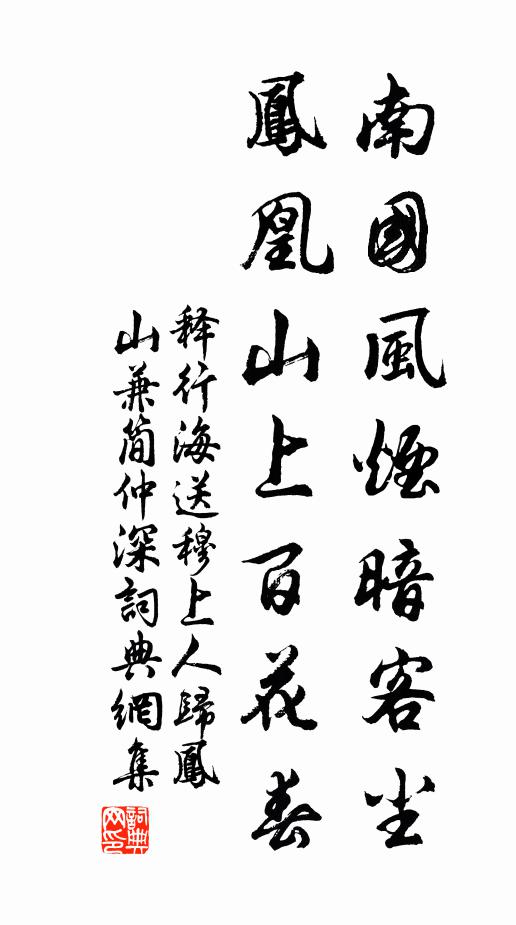 南國風煙暗客尘
鳳凰山上百花春
释行海送穆上人歸鳳
山兼简仲深詞典網集
詞典
网印